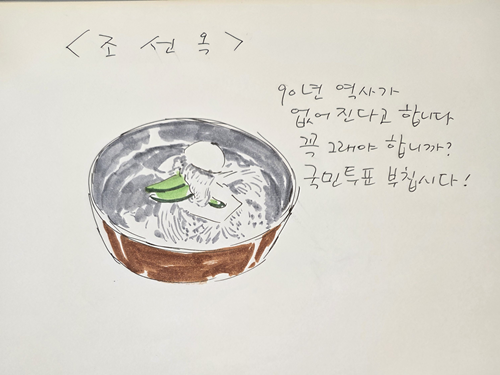 <조선옥>
90년 역사가
없어진다고 합니다
꼭 그래야 합니까?
국민투표 부칩시다!